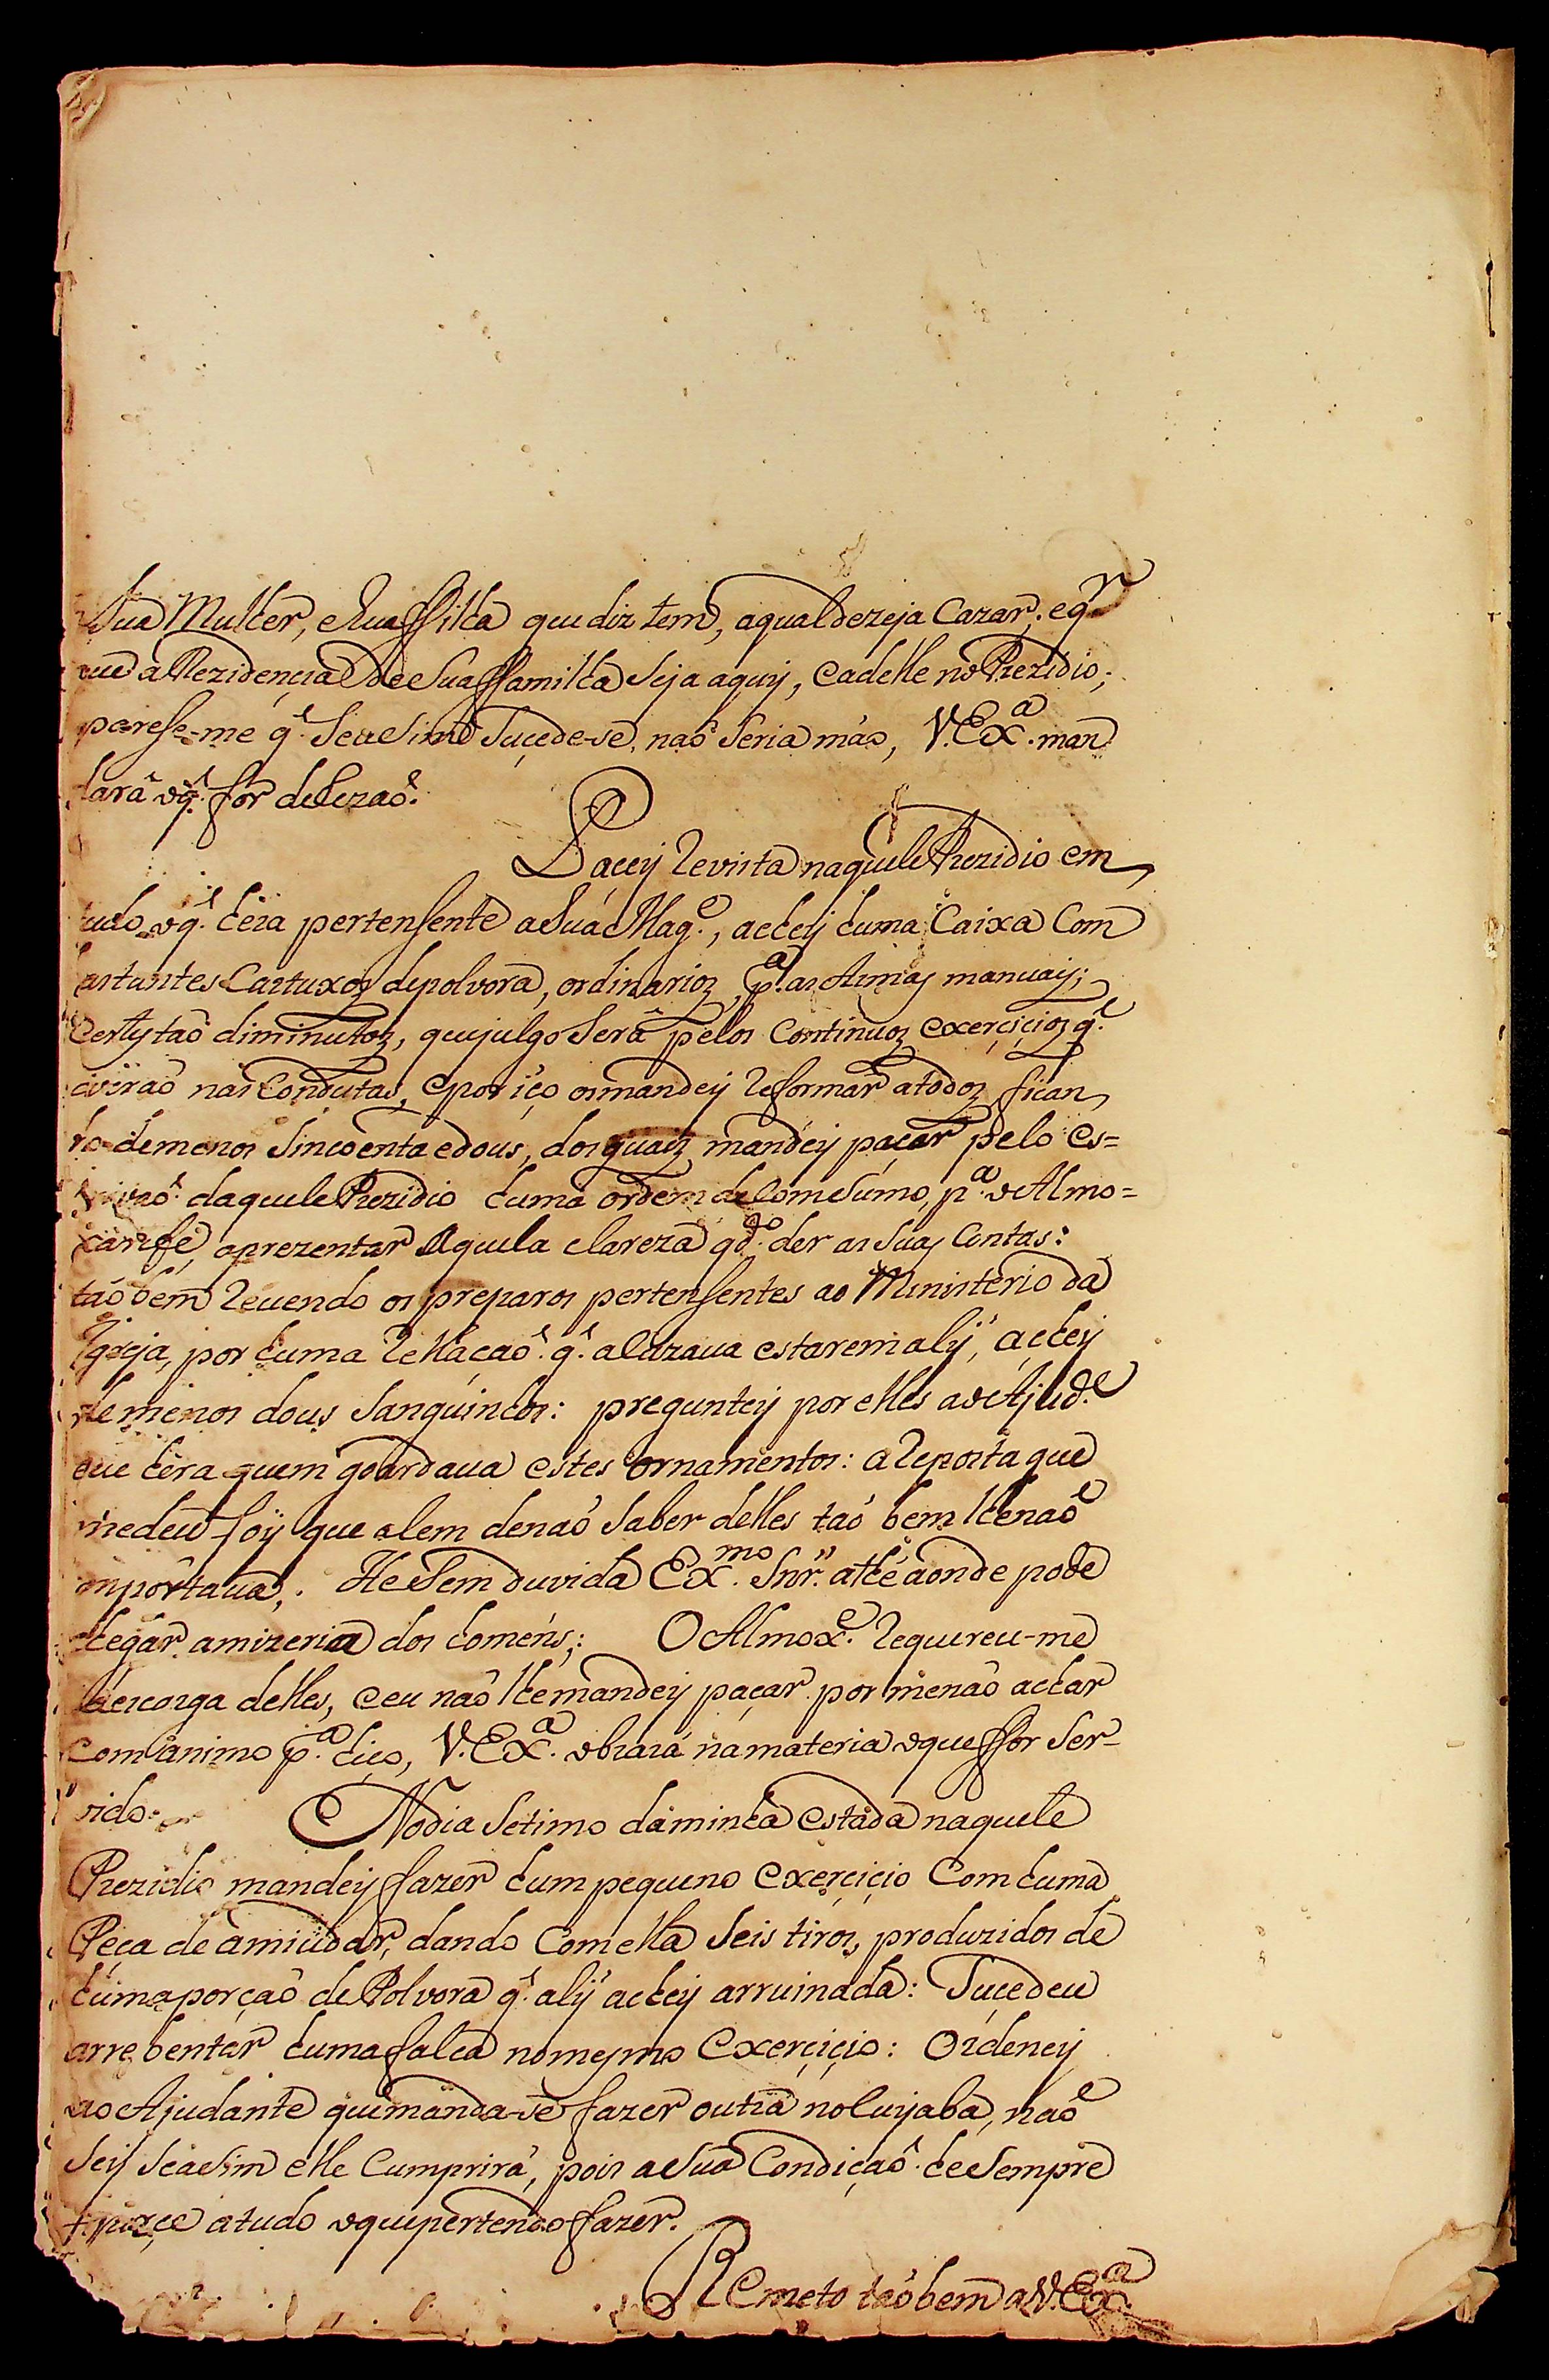 Sua Mulher, e hua ffilha que diz tem, a qual dezeja Cazar; e q̃r
que a Rezidençia de Sua ffamilha Seja aquy, e a delle no Prezidio;
parese-me q̃. Se aSim Suçede-se, naõ Seria máo, V. Exª. man
dará o q̃. for de Rezaõ.
Pacey Revista naquele Prezidio em
tudo o q̃. héra pertensente a Sua Mag.ᵉ, achey huma Caixa Com
bastantes Cartuxos de polvora, ordinarios, pª. as Armas manuais;
e estes taõ diminutos, que julgo Será pelos Continuos exerçiçios q̃.
tiveraõ nas Condutas, e por iço os mandey Reformar a todos, fican
do de menos Sincoenta e dous, dos quais mandey paçar pelo es=
crivaõ daquele Prezidio huma ordem de Comsumo, pª. o Almo=
xarife, aprezentar Aquela clareza qᵈᵒ. der as Suas Contas:
taõ bem Revendo os preparos pertensentes ao Ministerio da
Igreja, por huma Rellaçaõ. q̃. aluzava estarem aly, achey
de menos dous Sanguinhos: preguntey por elles ao Ajud.ᵉ
que héra quem goardava estes ornamentos: a Reposta que
me deu foy que alem de naõ Saber delles taõ bem lhe naõ
importava,. He Sem duvida Exᵐᵒ. Snr̃. athé aonde pode
chegar a mizeria dos homéns;: O Almoxᵉ. Requereu-me
descarga delles, e eu naõ lhe mandey paçar por me naõ achar
Com animo pª. hiço, V. Exª. obrará na materia o que ffor Ser-
vido:
No dia Setimo da minha estada naquele
Prezidio mandey ffazer hum pequeno exerçiçio Com huma
Peça de amiudar, dando Com ella Seis tiros, produzidos de
huma porçaõ de Polvora q̃. aly achey arruinada: Suçedeu
arrebentar huma falca no meymo exerçiçio: Ordeney
ao Ajudante que manda-se fazer outra no Cuyaba, naõ
Sey Se aSim elle Cumprirá, pois a Sua Condiçaõ. he Sempre
a tudo o que pertendo ffazer.
Remeto taõ bem a V. Exª.